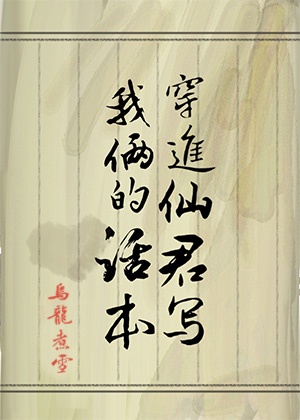 穿進仙君写
我俩的话本
烏龍煮雪